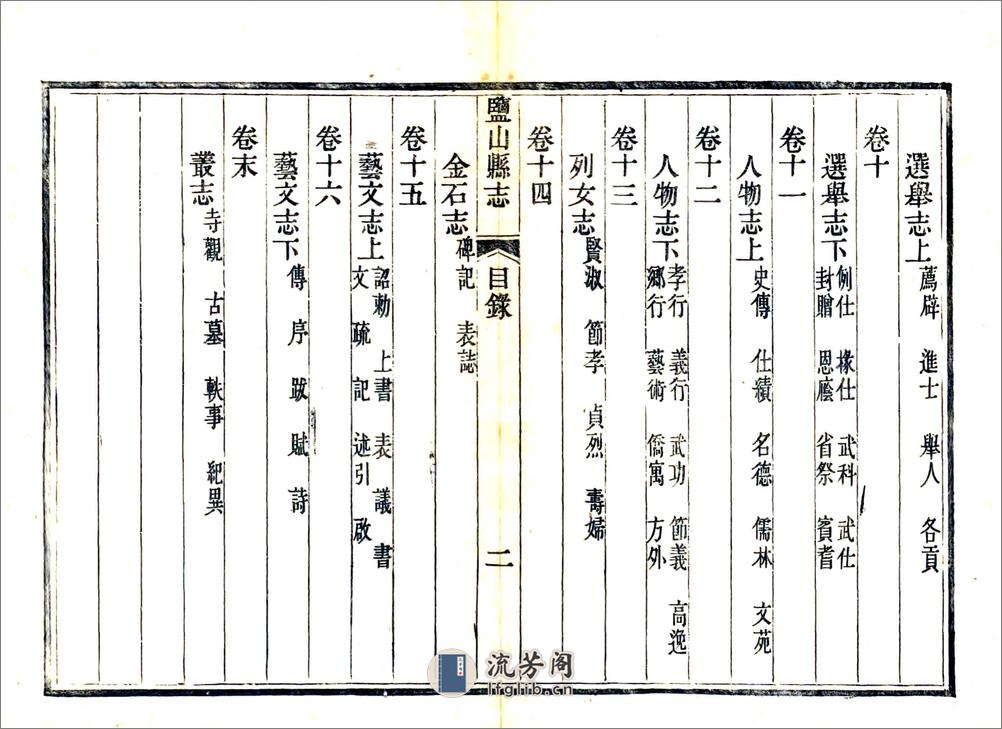 選舉志上 薦辟 進士 舉人 各貢
卷十
選舉志下 例仕 掾仕 武科 武仕
封贈 恩廕 省祭 賓耆
卷十一
人物志上 史傳 仕績 名德 儒林 文苑
卷十二
人物志下 孝行 義行 武功 節義 高逸
鄉行 藝術 僑寓 方外
卷十三
列女志 賢淑 節孝 貞烈 壽婦
卷十四
鹽山縣志 目錄 二
金石志 碑記 表誌
卷十五
藝文志上 詔勅 上書 表 議 書
文 疏 記 述引 啟
卷十六
藝文志下 傳 序 跋 賦 詩
卷末
叢志 寺觀 古墓 軼事 紀異
流芳阁
lfglib.cn